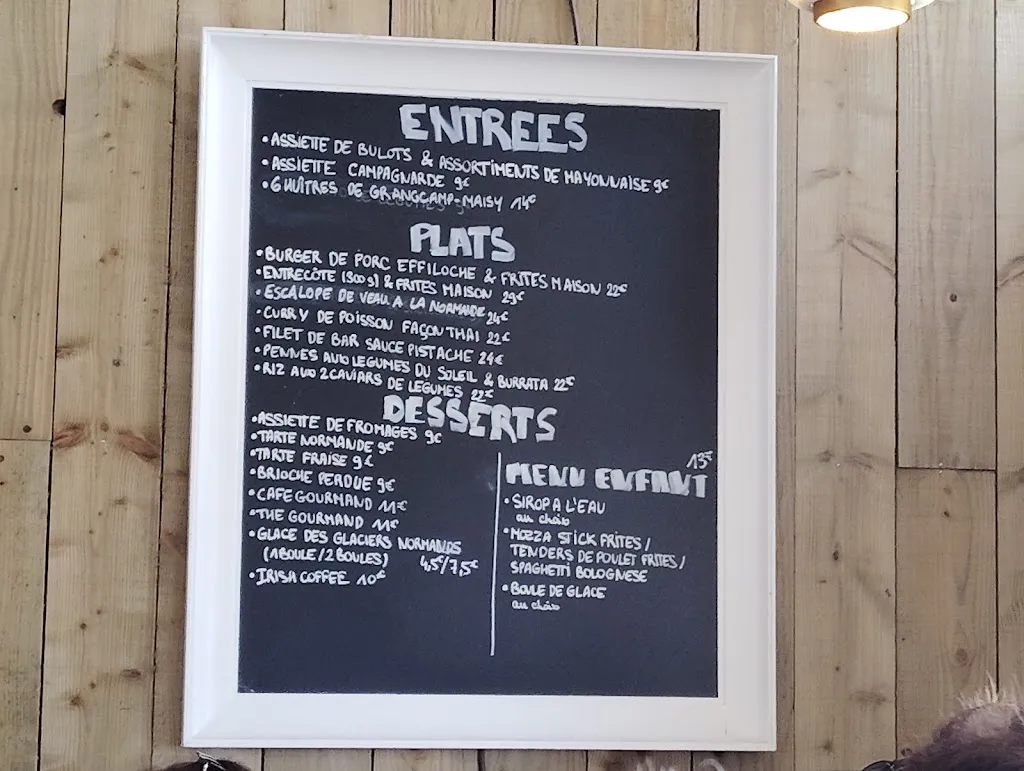 ENTREES
• ASSIETTE DE BULOTS & ASSORTIMENTS DE MAYONNAISE 9€
• ASSIETTE CAMPAGNARDE 9€
• 6 HUÎTRES DE GRANGCAMP-MAISY 14€
PLATS
• BURGER DE PORC EFFILOCHE & FRITES MAISON 22€
• ENTRECÔTE (300g) & FRITES MAISON 29€
• ESCALOPE DE VEAU A LA NORMANDE 24€
• CURRY DE POISSON FAÇON THAI 22€
• FILET DE BAR SAUCE PISTACHE 24€
• PENNES AUX LEGUMES DU SOLEIL & BURRATA 22€
• RIZ AUX 2 CAVIARS DE LEGUMES 22€
DESSERTS
• ASSIETTE DE FROMAGES 9€
• TARTE NORMANDE 9€
• TARTE FRAISE 9€
• BRIOCHE PERDUE 9€
• CAFE GOURMAND 11€
• THE GOURMAND 11€
• GLACE DES GLACIERS NORMANDS
(1 BOULE / 2 BOULES) 4,5€/7,5€
• IRISH COFFEE 10€
13€
MENU ENFANT
• SIROP A L'EAU
au choix
• MOZZA STICK FRITES /
TENDERS DE POULET FRITES /
SPAGHETTI BOLOGNESE
• BOULE DE GLACE
au choix